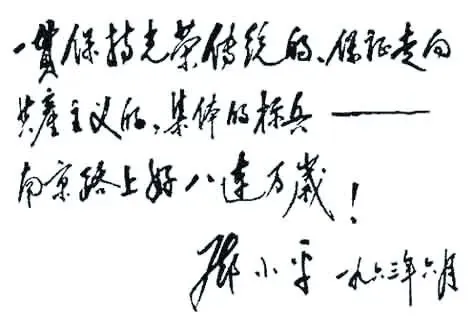 一貫保持光荣傳統的、保证走向
共產主义的，集体的标兵——
南京路上好八连万歲！
邓小平 一九六三年六月